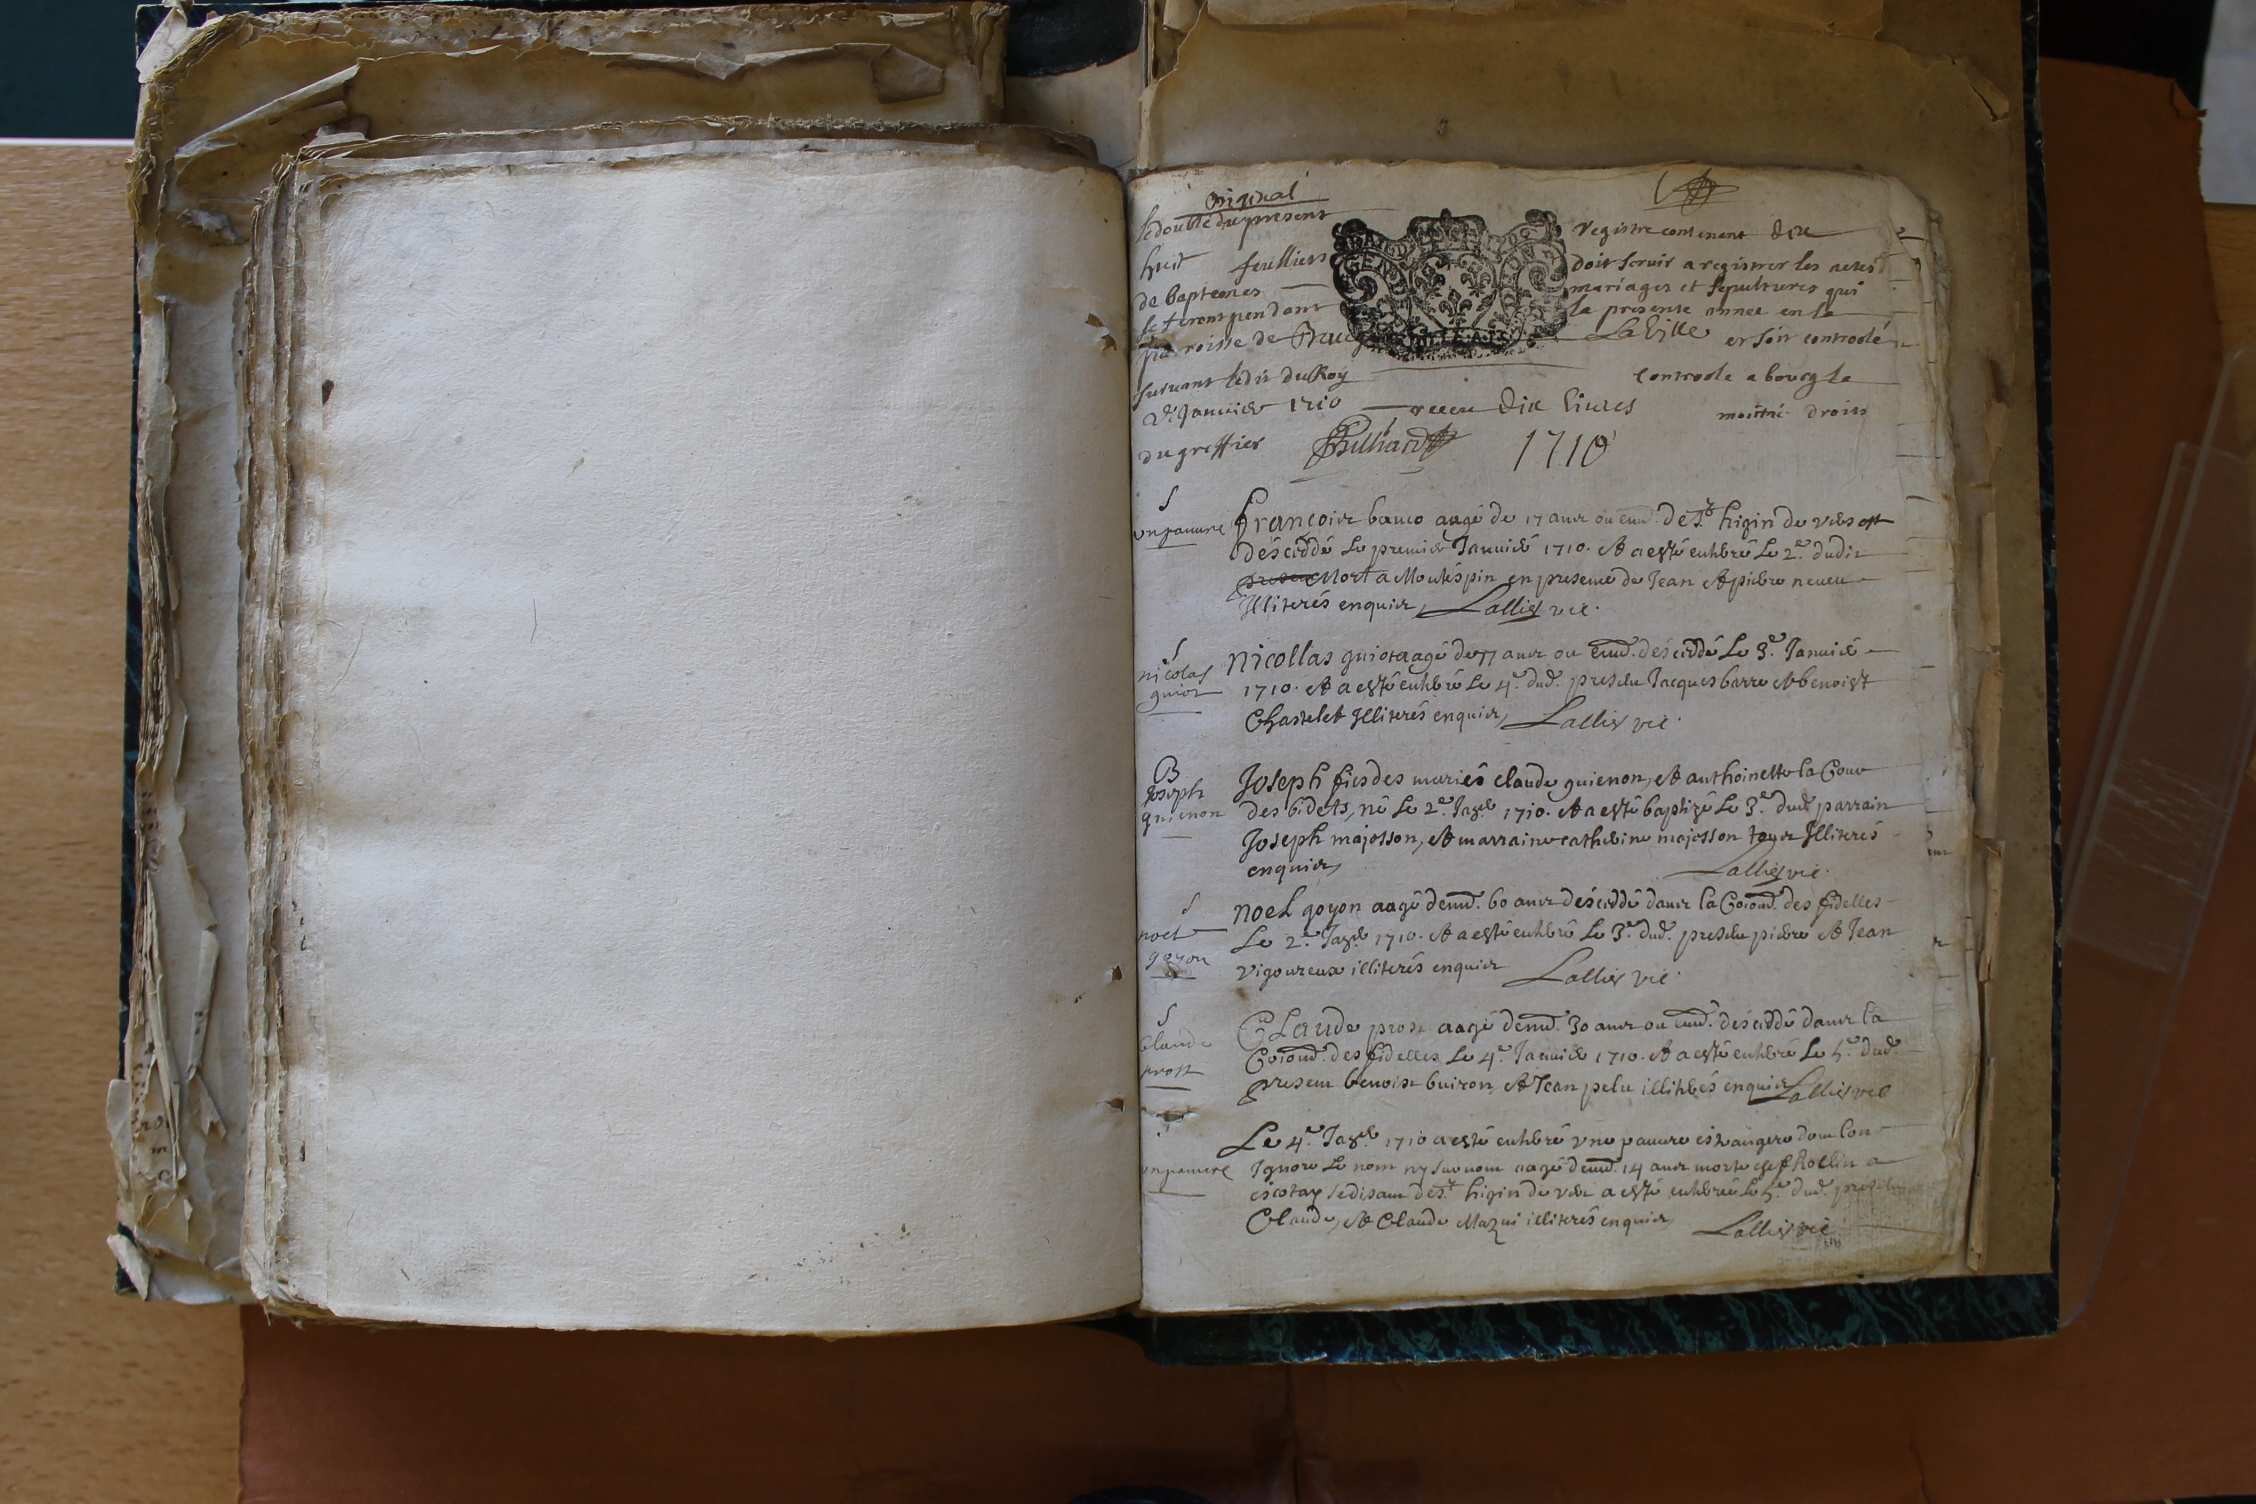 Original
le double du present registre contenant dix
huit feulliers doit servir a registrer les actes
de baptemes mariages et sepultures qui
se feront pendant la presente annee en la
paroisse de La Ville et soit controolé
suivant ledit du Roy Controole a bourg le
Janvier 1710 receu dix livres moittié droits
du greffier Billiard 1710
S
un pauvre
francois aagé de 17 ans ou end. de St higin de
désceddé Le premier Janvier 1710. Et a esté enterré Le 2e. dudit
Mort a Montéspin en presence de Jean Et pierre neveu
Illiterés enquis, Lallier vic.
S
nicolas
guiot
Nicollas guiot aagé de 77 ans ou end. désceddé Le 3e. Janvier
1710. Et a esté enterré Le 4e. dud. presens Jacques barre Et benoist
Chastelet Illiterés enquis, Lallier vic.
B
Joseph
guienon
Joseph fils des mariés claude guienon, Et anthoinette la Coue
des bidets, né Le 2e. Janer 1710. Et a esté baptizé Le 3e. dud. parrain
Joseph majosson, Et marraine catherine majosson tous Illiterés
enquis, Lallier vic.
S
noel
goyon
Noel goyon aagé denud. 60 ans désceddé dans la Coiond. des fidelles
Le 2e. Janer 1710. Et a esté enterré Le 3e. dud. presens pierre Et Jean
vigoureux illiterés enquis Lallier vic.
S
Claude
prost
CLaude prost aagé denud. 30 ans ou end. désceddé dans la
Coiond. des fidelles Le 4e. Janvier 1710. Et a esté enterré Le 5e. dud.
presens benoist buiron, Et Jean pelu illiterés enquis Lallier vic
un pauvre
Le 4e. Janer 1710 a esté enterré une pauvre estrangere dont lon
Ignore Le nom ny surnom aagé denud. 14 ans morte a
se disant de St higin de a esté enterrée le 5e. dud.
Claude, Et Claude Mazui illiterés enquis, Lallier vic